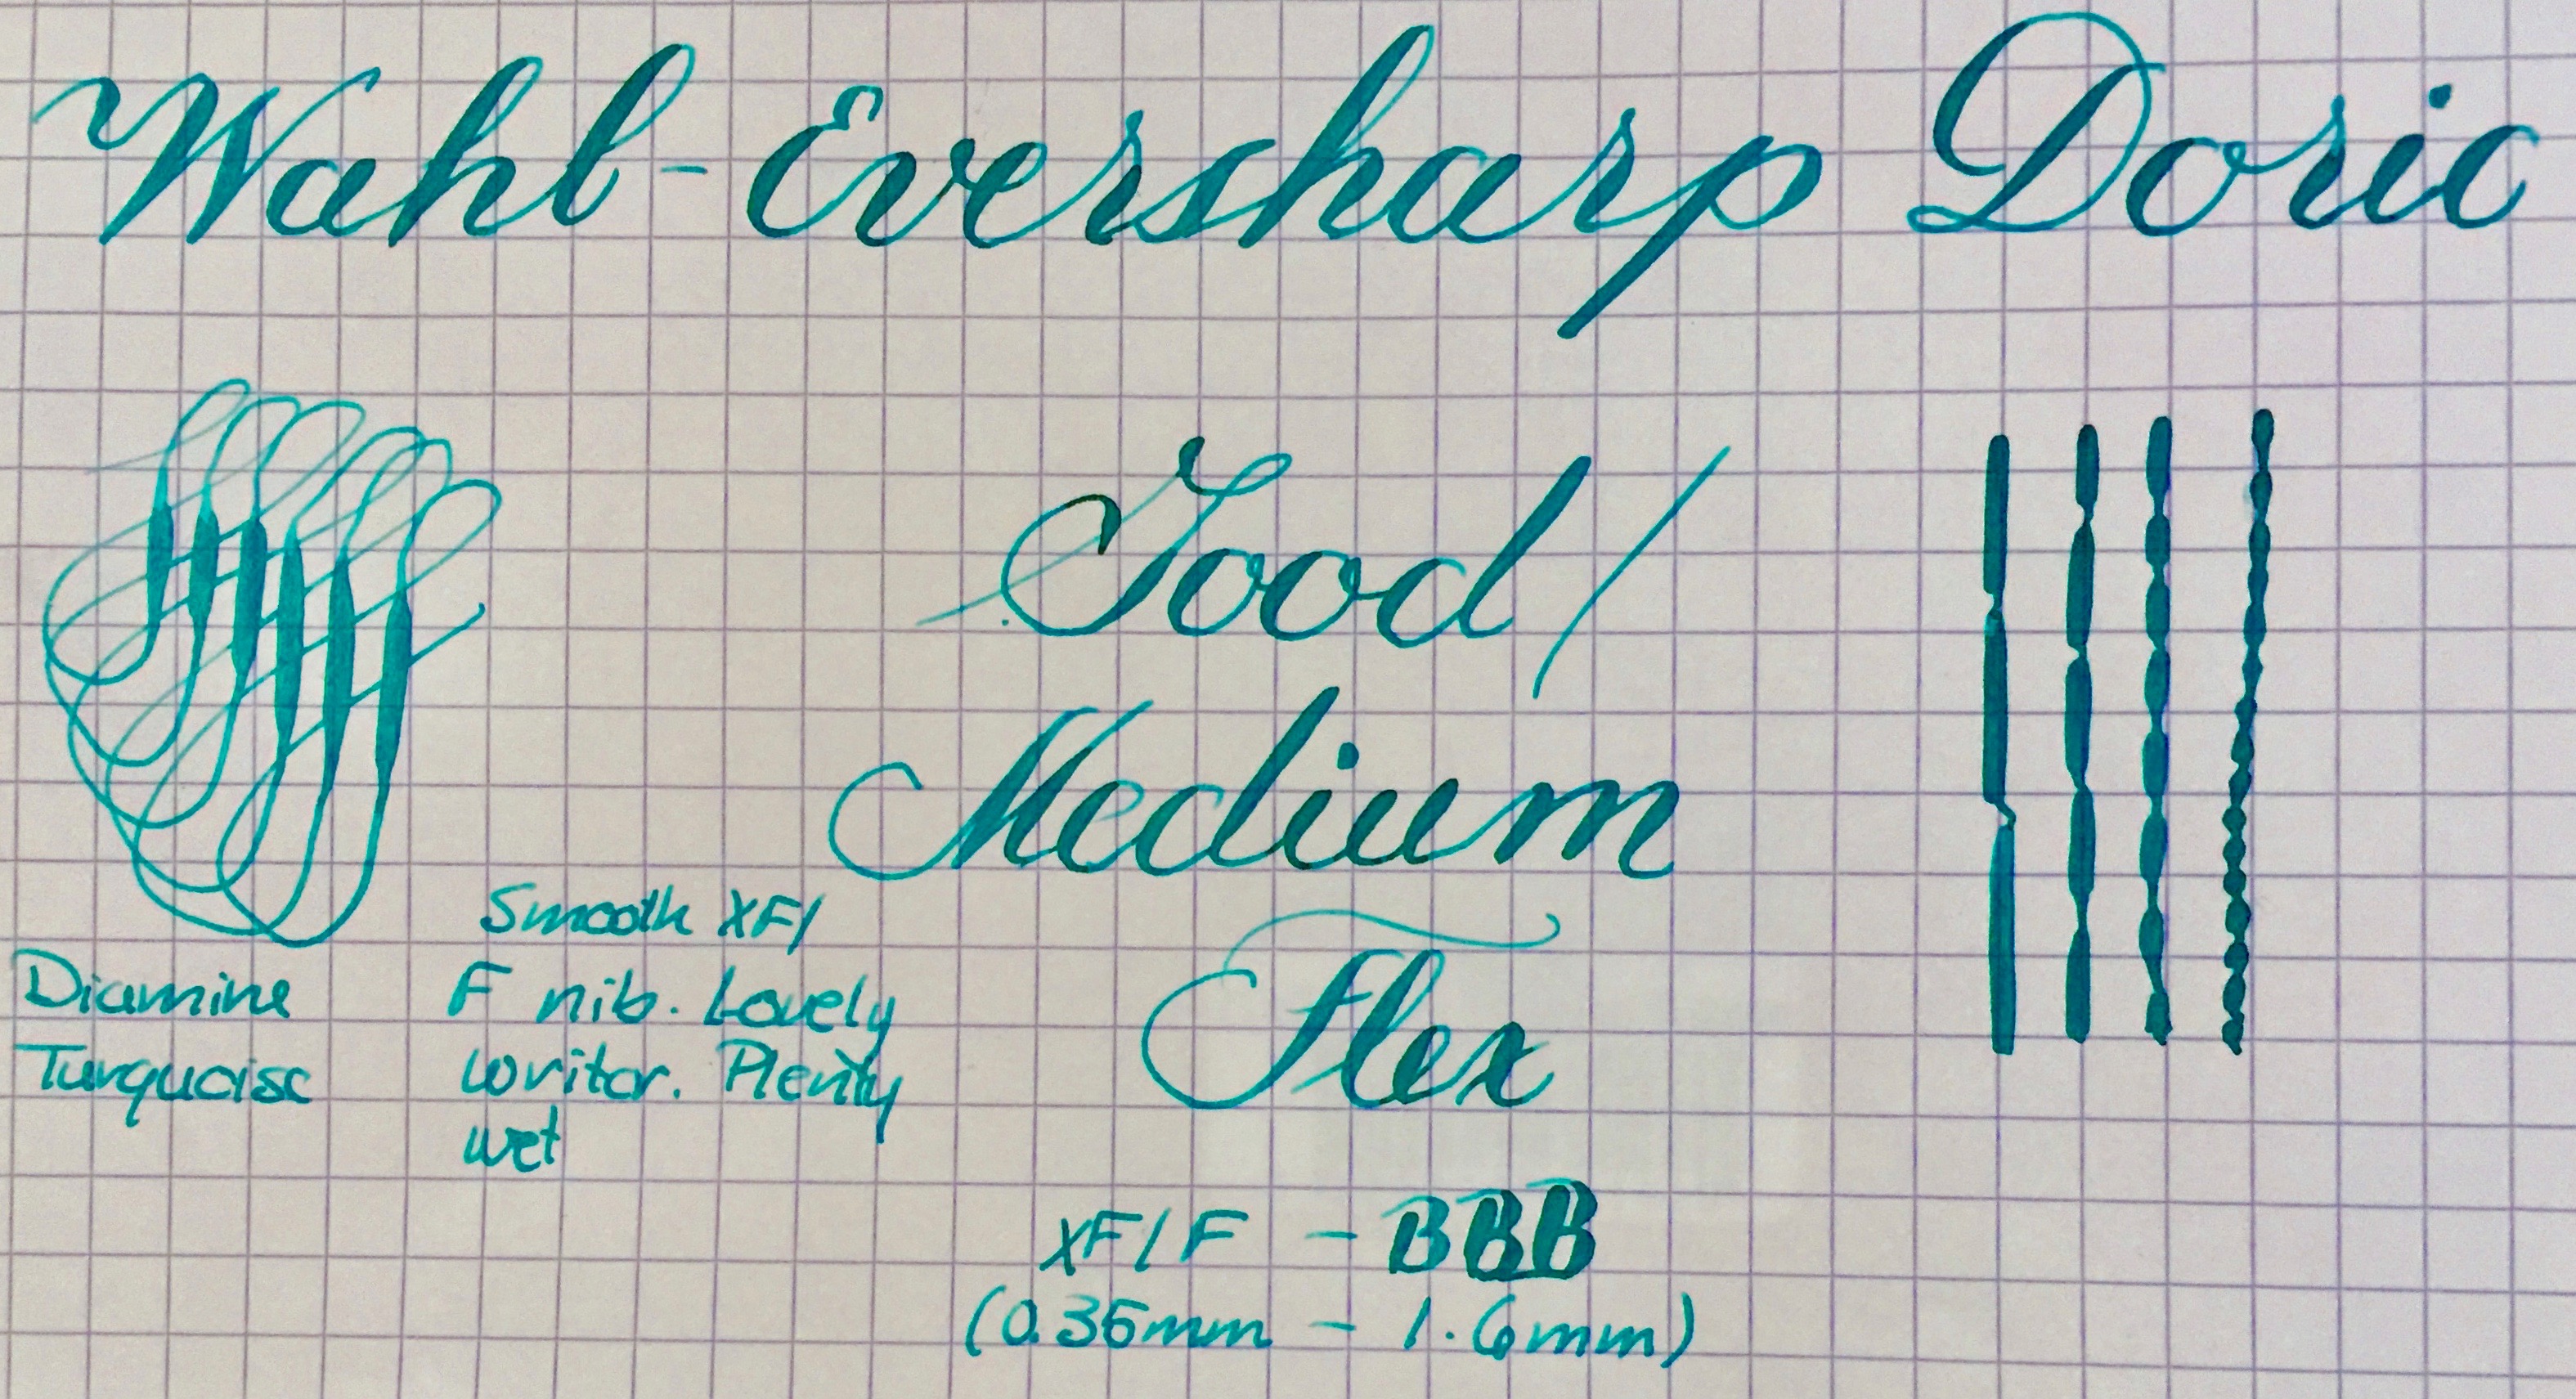 Wahl-Eversharp Doric
Good/
Medium
Flex
Smooth XF/
F nib. Lovely
writer. Plenty
wet
Diamine
Turquoise
XF/F - BBB
(0.35mm - 1.6mm)